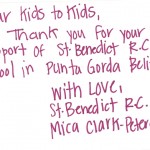 ur Kids to Kids,
Thank you for your
pport of St. Benedict R.C.
ool in Punta Gorda Beli
with Love,
St. Benedict R.C.
Mica Clark-Peter